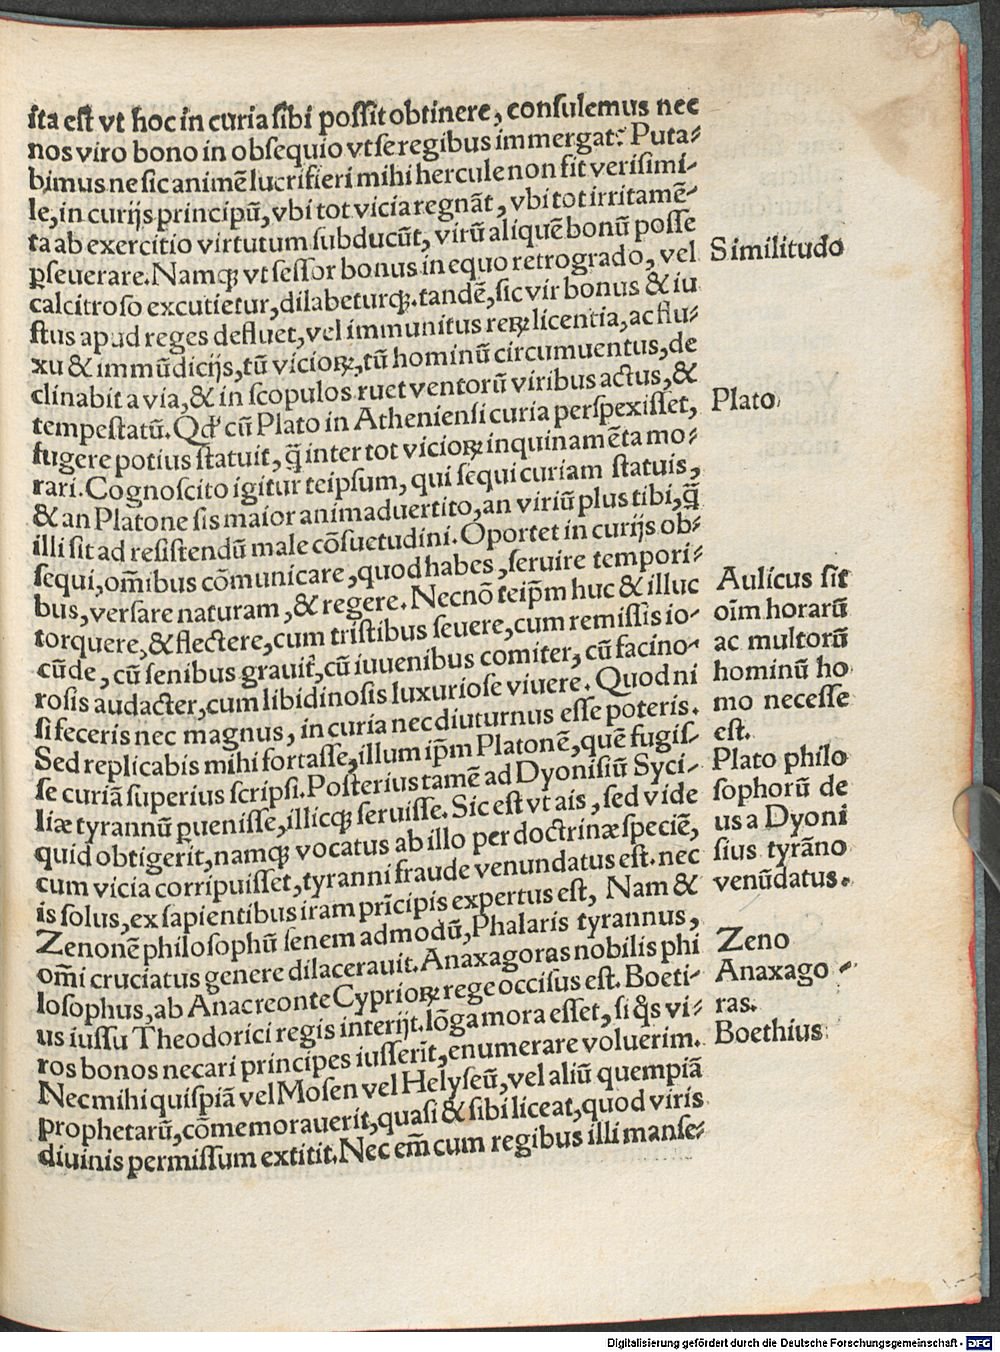 ita est vt hoc in curia sibi possit obtinere, consulemus nec
nos viro bono in obsequio vt se regibus immergat? Puta⸗
bimus ne sic animē lucrifieri mihi hercule non fit verisimi⸗
le, in curijs principū, vbi tot vicia regnāt, vbi tot irritamē⸗
ta ab exercitio virtutum subducūt, virū aliquē bonū posse
ꝑseuerare. Namqꝫ vt sessor bonus in equo retrogrado, vel
Similitudo
calcitroso excutietur, dilabeturqꝫ. tandē, sic vir bonus & iu
stus apud reges defluet, vel immunitus reꝝ licentia, ac flu⸗
xu & immūdicijs, tū vicioꝝ, tū hominū circumuentus, de
clinabit a via, & in scopulos ruet ventorū viribus actus, &
tempestatū. Qđ cū Plato in Atheniensi curia perspexisset,
Plato
fugere potius statuit, q̄ inter tot vicioꝝ inquinamēta mo⸗
rari. Cognoscito igitur teipsum, qui sequi curiam statuis,
& an Platone sis maior animaduertito, an viriū plus tibi, q̄
illi sit ad resistendū male cōsuetudini. Oportet in curijs ob⸗
sequi, om̄ibus cōmunicare, quod habes, seruire tempori⸗
bus, versare naturam, & regere. Necnō teip̄m huc & illuc
torquere, & flectere, cum tristibus seuere, cum remissis io⸗
cūde, cū senibus grauit̄, cū iuuenibus comiter, cū facino⸗
rosis audacter, cum libidinosis luxuriose viuere. Quod ni
si feceris nec magnus, in curia nec diuturnus esse poteris.
Aulicus sit
oīm horarū
ac multorū
hominū ho
mo necesse
est.
Sed replicabis mihi fortasse, illum ip̄m Platonē, quē fugis⸗
se curiā superius scripsi. Posterius tamē ad Dyonisiū Syci⸗
liæ tyrannū ꝑuenisse, illicqꝫ seruisse. Sic est vt ais, sed vide
quid obtigerit, namqꝫ vocatus ab illo per doctrinæ speciē,
cum vicia corripuisset, tyranni fraude venundatus est. nec
is solus, ex sapientibus iram prīcipis expertus est, Nam &
Plato philo
sophorū de
us a Dyoni
sius tyrāno
venūdatus.
Zenonē philosophū senem admodū, Phalaris tyrannus,
Zeno
om̄i cruciatus genere dilacerauit. Anaxagoras nobilis phi
losophus, ab Anacreonte Cyprioꝝ rege occisus est. Boeti⸗
Anaxago⸗
ras.
us iussu Theodorici regis interijt. lōga mora esset, si q̄s vi⸗
Boethius
ros bonos necari principes iusserīt, enumerare voluerim.
Nec mihi quispiā vel Mosen vel Helyseū, vel aliū quempiā
prophetarū, cōmemorauerit, quasi & sibi liceat, quod viris
diuinis permissum extitit. Nec em̄ cum regibus illi manse⸗
Digitalisierung gefördert durch die Deutsche Forschungsgemeinschaft - DFG